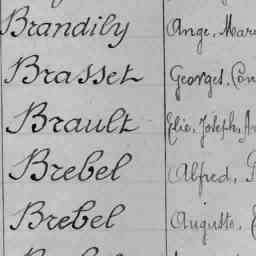 Brandily Ange, Mari
Brasset Georges, Con
Brault Elie, Joseph, Ar
Brebel Alfred, P
Brebel Auguste, E